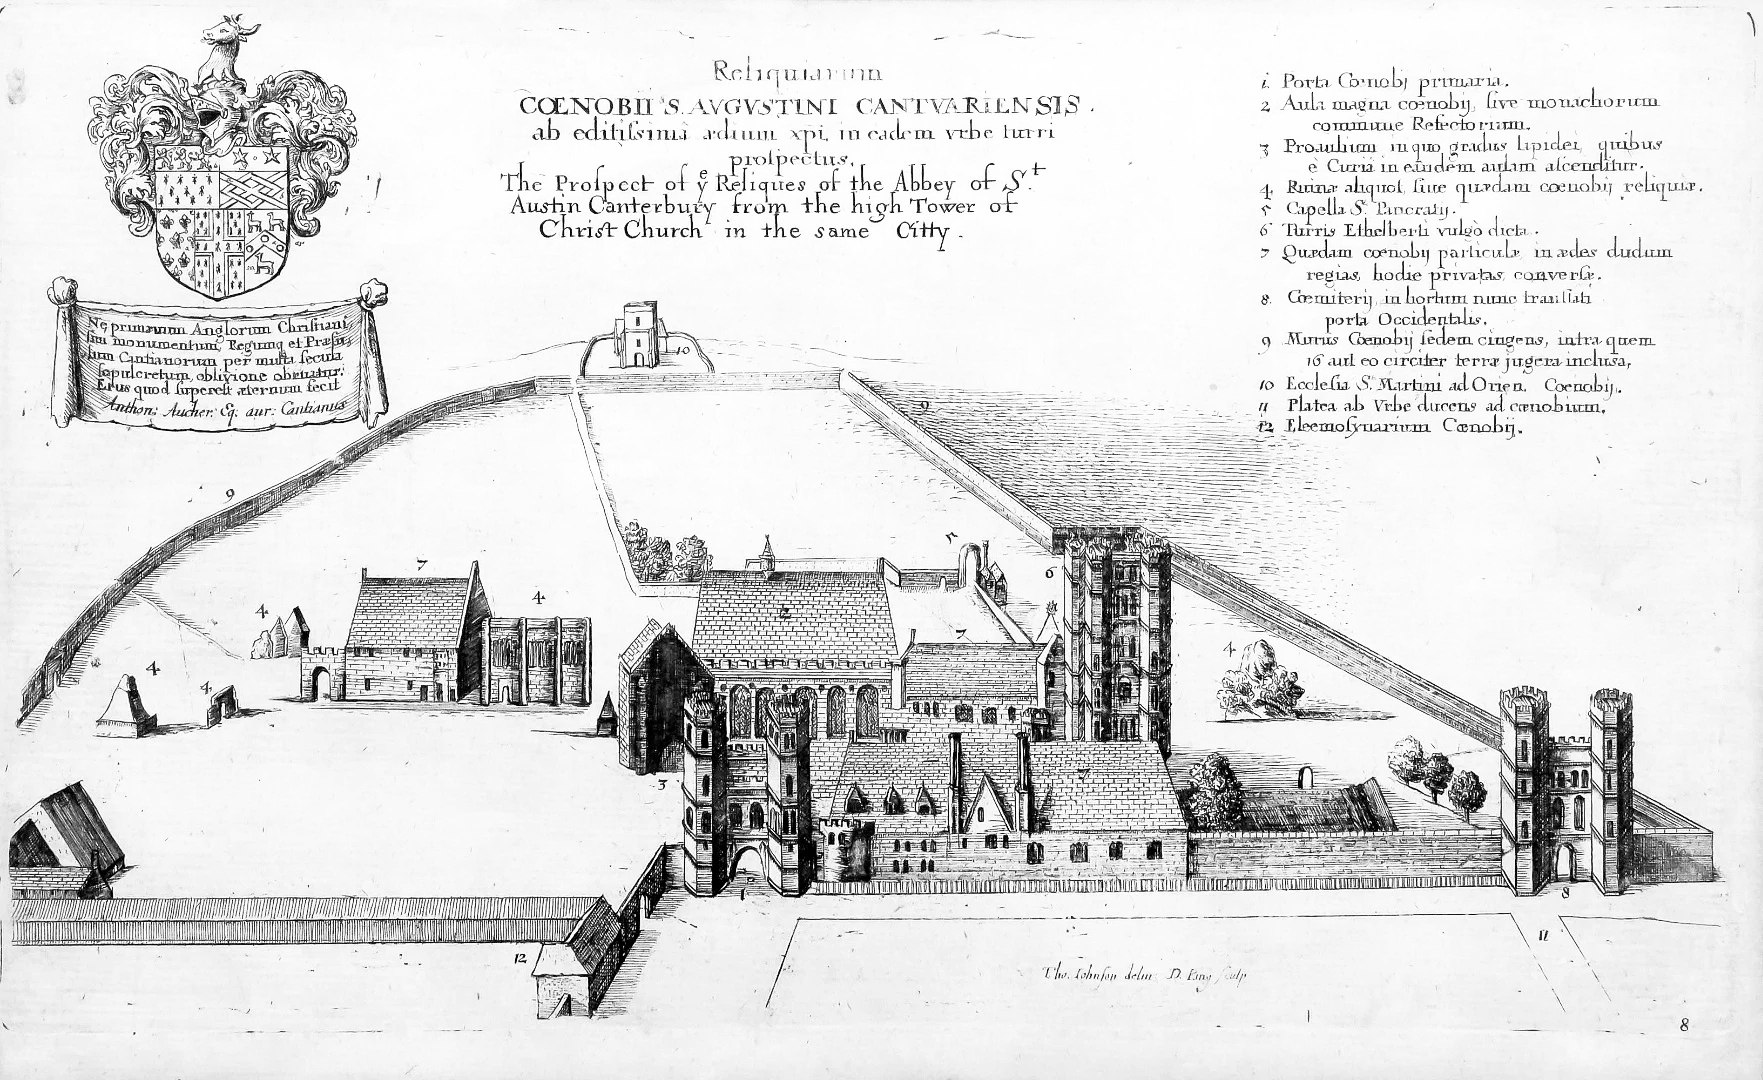 Reliquiarum
CŒNOBII S. AVGVSTINI CANTVARIENSIS.
ab editiſsima ædium xpi. in eadem vrbe turri
proſpectus.
The Proſpect of yͤ Reliques of the Abbey of S.ᵗ
Austin Canterbury from the high Tower of
Christ Church in the same Citty.
Ne primævum Anglorum Chriſtiani,
ſmi monumentum, Regumq et Præſu,
lum Cantianorum per multa ſecula
ſepulcretum, oblivione obruatur.
Ejus quod ſupereſt æternum fecit
Anthon: Aucher. Eq. aur: Cantianus
1. Porta Cœnobij primaria.
2 Aula magna cœnobij, ſive monachorum
commune Refectorium.
3 Proaulium in quo gradus lapidei, quibus
è Curia in eandem aulam aſcenditur.
4. Ruinæ aliquot, ſiue quædam cœnobij reliquiæ.
5 Capella Sᵗ. Pancratij.
6 Turris Ethelberti vulgò dicta.
7 Quædam cœnobij particulæ in ædes dudum
regias, hodie privatas, converſæ.
8. Cœmiterij, in hortum nunc tranſlati
porta Occidentalis.
9 Murus Cœnobij ſedem cingens, intra quem
16 aut eo circiter terræ jugera incluſa,
10 Eccleſia Sᵗ. Martini ad Orien. Cœnobij.
11 Platea ab Vrbe ducens ad cœnobium.
12 Eleemoſynarium Cœnobij.
10
9
9
5
7
6
4
4
2
7
4
4
4
3
7
1
8
11
12
Tho. Iohnſon delin: D. King ſculp
8